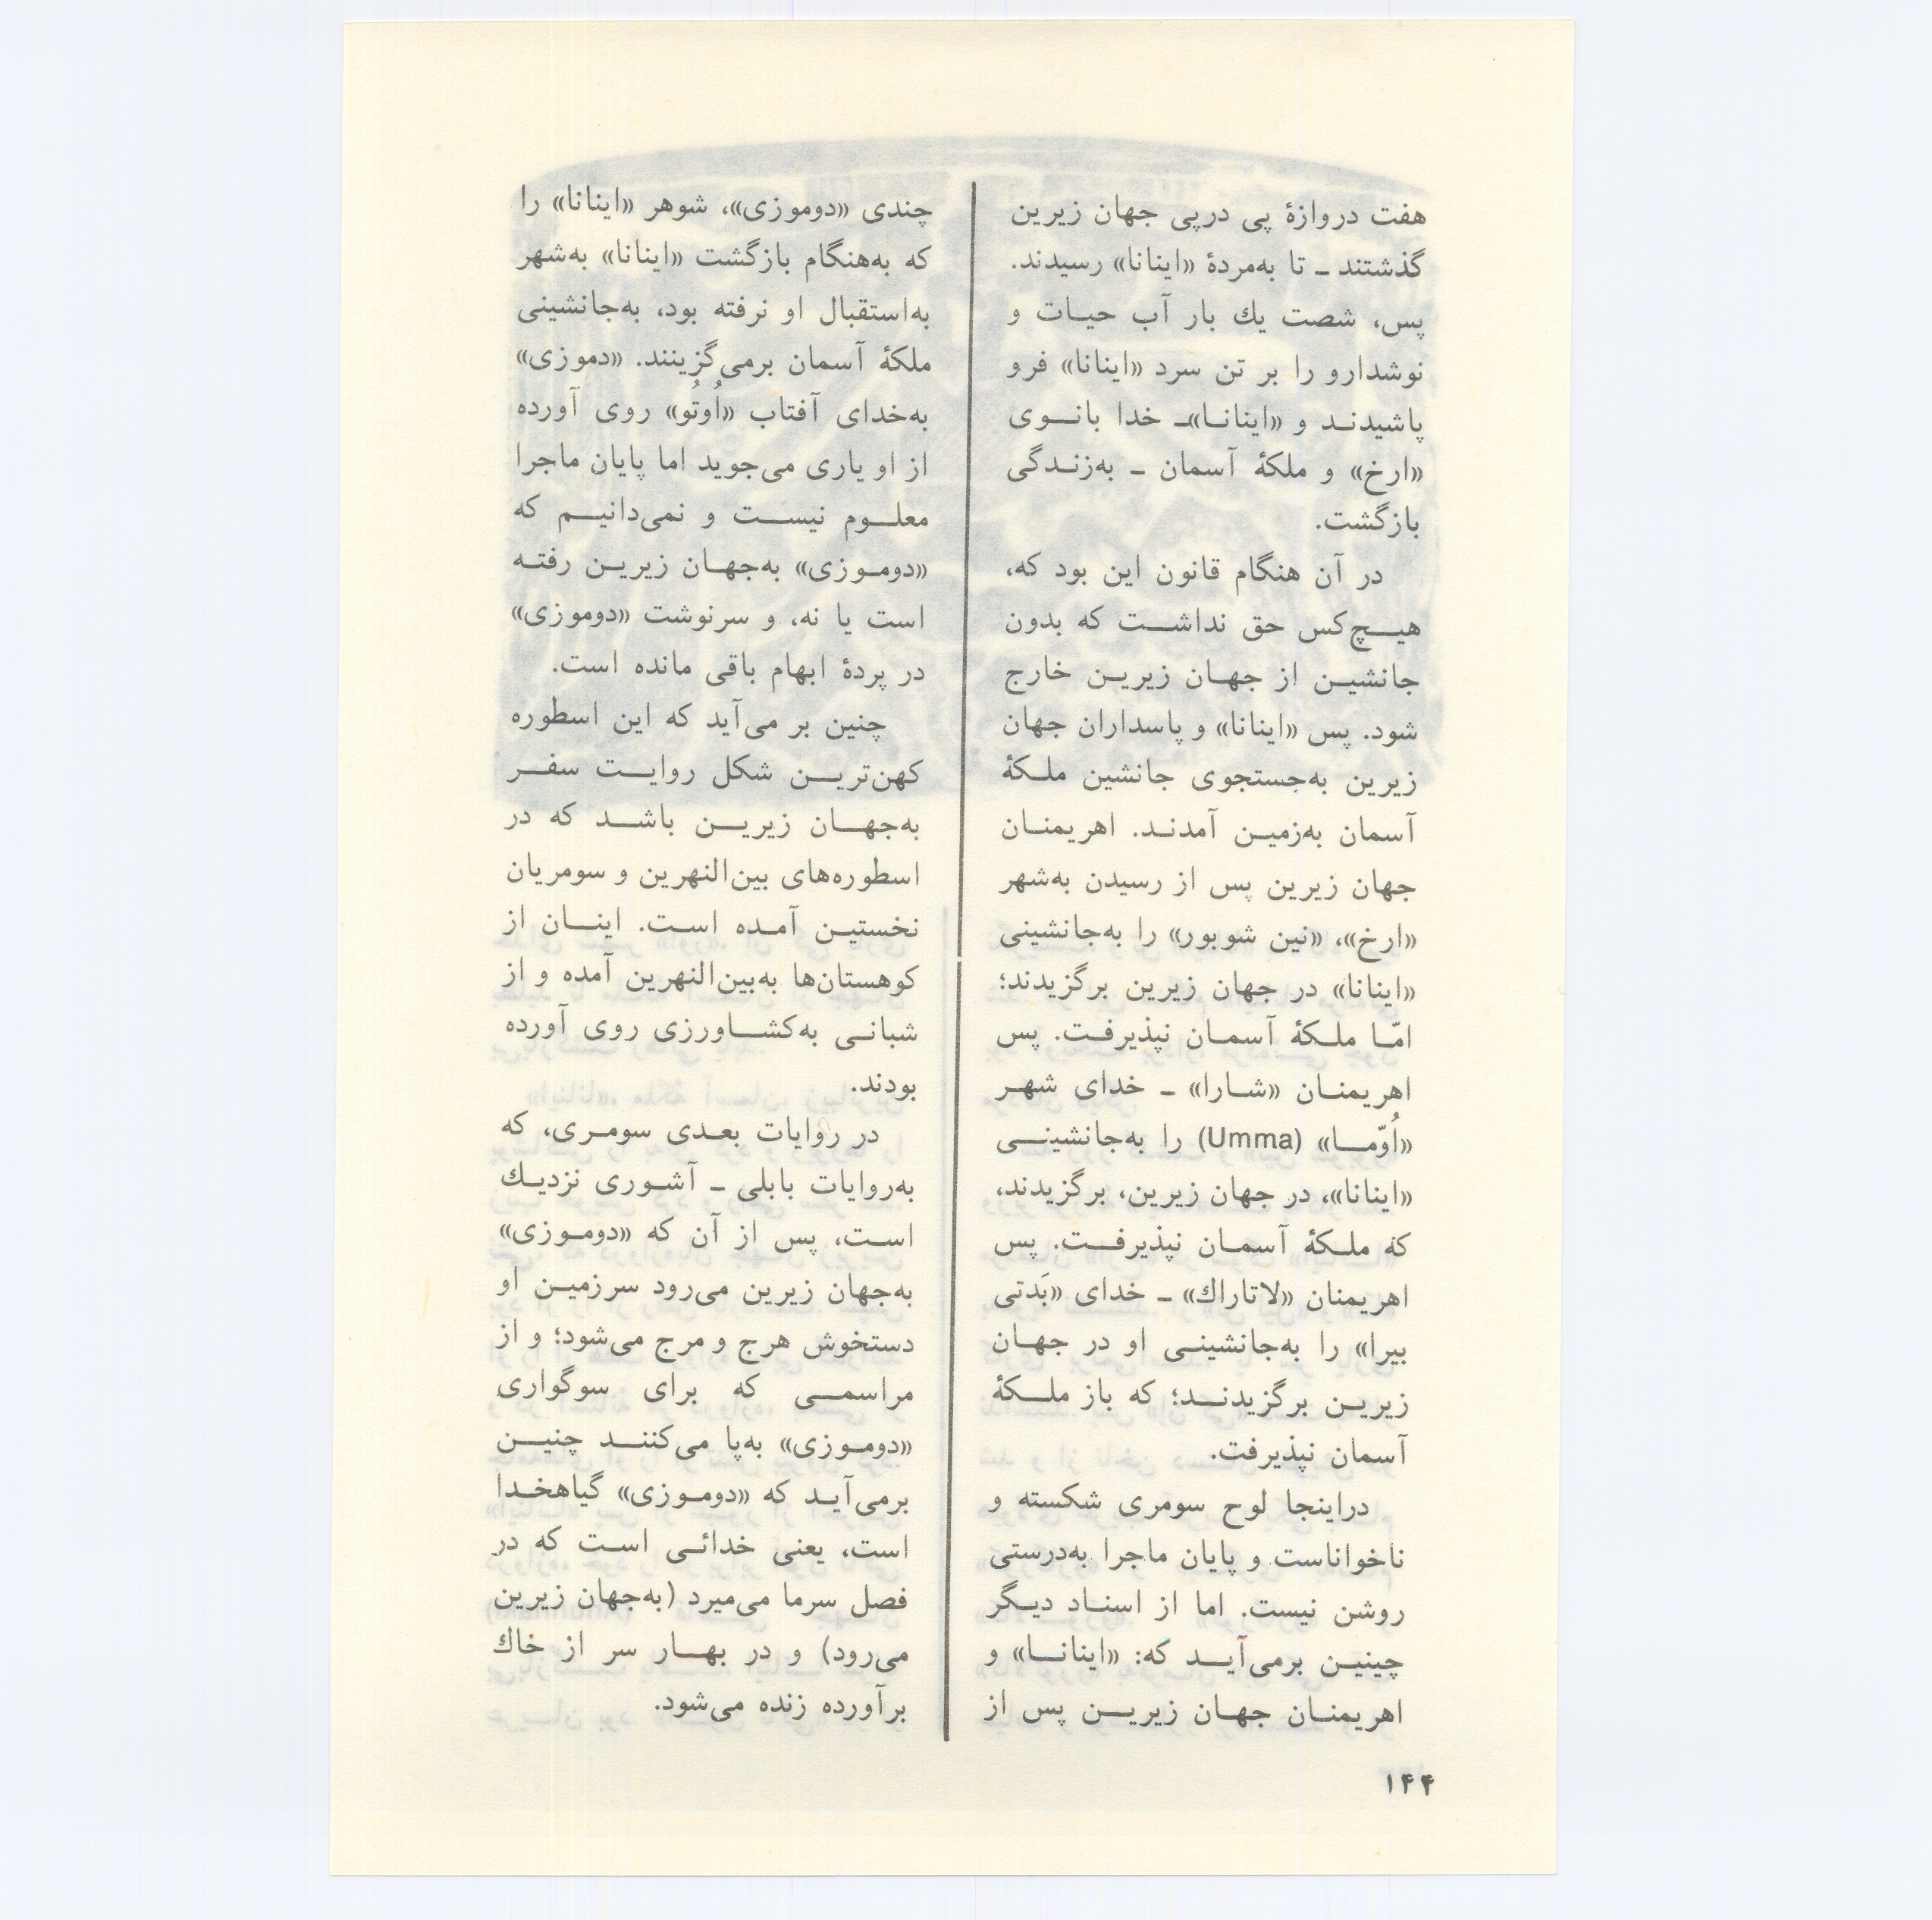 هفت دروازهٔ پی درپی جهان زیرین
گذشتند ـ تا به‌مردهٔ «اینانا» رسیدند.
پس، شصت یك بار آب حیـات و
نوشدارو را بر تن سرد «اینانا» فرو
پاشیدنـد و «اینانـا»ـ خدا بانـوی
«ارخ» و ملکهٔ آسمان ـ به‌زنـدگی
بازگشت.
در آن هنگام قانون این بود که،
هیـچ‌کس حق نداشـت که بدون
جانشیـن از جهـان زیریـن خارج
شود. پس «اینانا» و پاسداران جهان
زیرین به‌جستجوی جانشین ملـکهٔ
آسمان به‌زمیـن آمدنـد. اهریمنـان
جهان زیرین پس از رسیدن به‌شهر
«ارخ»، «نین شوبور» را به‌جانشینی
«اینانا» در جهان زیرین برگزیدند؛
امّـا ملـکهٔ آسمـان نپذیرفـت. پس
اهریمنـان «شـارا» ـ خدای شهـر
«اُوّمـا» (Umma) را به‌جانشینـی
«اینانا»، در جهان زیرین، برگزیدند،
که ملـکهٔ آسمـان نپذیرفـت. پس
اهریمنان «لاتاراك» ـ خدای «بَدتی
بیرا» را به‌جانشینـی او در جهـان
زیریـن برگزیدنـد؛ که باز ملـکهٔ
آسمان نپذیرفت.
دراینجا لوح سومری شکسته و
ناخواناست و پایان ماجرا به‌درستی
روشن نیست. اما از اسنـاد دیـگر
چینیـن برمی‌آیـد که: «اینانـا» و
اهریمنـان جهـان زیریـن پس از
چندی «دوموزی»، شوهر «اینانا» را
که به‌هنگام بازگشت «اینانا» به‌شهر
به‌استقبال او نرفته بود، به‌جانشینی
ملکهٔ آسمان برمی‌گزینند. «دموزی»
به‌خدای آفتاب «اُوتُو» روی آورده
از او یاری می‌جوید اما پایان ماجرا
معلـوم نیسـت و نمی‌دانیـم که
«دومـوزی» به‌جهـان زیریـن رفتـه
است یا نه، و سرنوشت «دوموزی»
در پردهٔ ابهام باقی مانده است.
چنین بر می‌آید که این اسطوره
کهن‌تریـن شکل روایـت سفـر
به‌جهـان زیریـن باشـد که در
اسطوره‌های بین‌النهرین و سومریان
نخستیـن آمـده اسـت. اینـان از
کوهستان‌ها به‌بین‌النهرین آمده و از
شبانـی به‌کشـاورزی روی آورده
بودند.
در روایات بعـدی سومـری، که
به‌روایات بابلی ـ آشـوری نزدیـك
اسـت، پس از آن که «دومـوزی»
به‌جهان زیرین می‌رود سرزمیـن او
دستخوش هرج و مرج می‌شود؛ و از
مراسمـی که برای سوگواری
«دومـوزی» به‌پا می‌کننـد چنیـن
برمی‌آیـد که «دومـوزی» گیاهخـدا
است، یعنی خدائـی اسـت که در
فصل سرما می‌میرد (به‌جهان زیرین
می‌رود) و در بهـار سر از خاك
برآورده زنده می‌شود.
۱۴۴